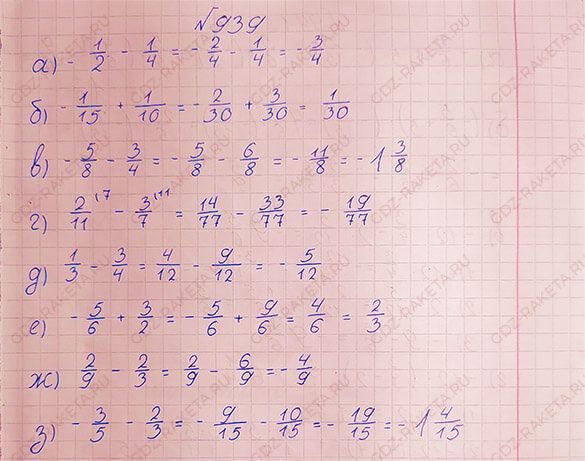 №939
а) - 1/2 - 1/4 = - 2/4 - 1/4 = - 3/4
б) - 1/15 + 1/10 = - 2/30 + 3/30 = 1/30
в) - 5/8 - 3/4 = - 5/8 - 6/8 = - 11/8 = - 1 3/8
г) 2/11 (7 - 3/7 (11 = 14/77 - 33/77 = - 19/77
д) 1/3 - 3/4 = 4/12 - 9/12 = - 5/12
е) - 5/6 + 3/2 = - 5/6 + 9/6 = 4/6 = 2/3
ж) 2/9 - 2/3 = 2/9 - 6/9 = - 4/9
з) - 3/5 - 2/3 = - 9/15 - 10/15 = - 19/15 = - 1 4/15
GDZ-RAKETA.RU